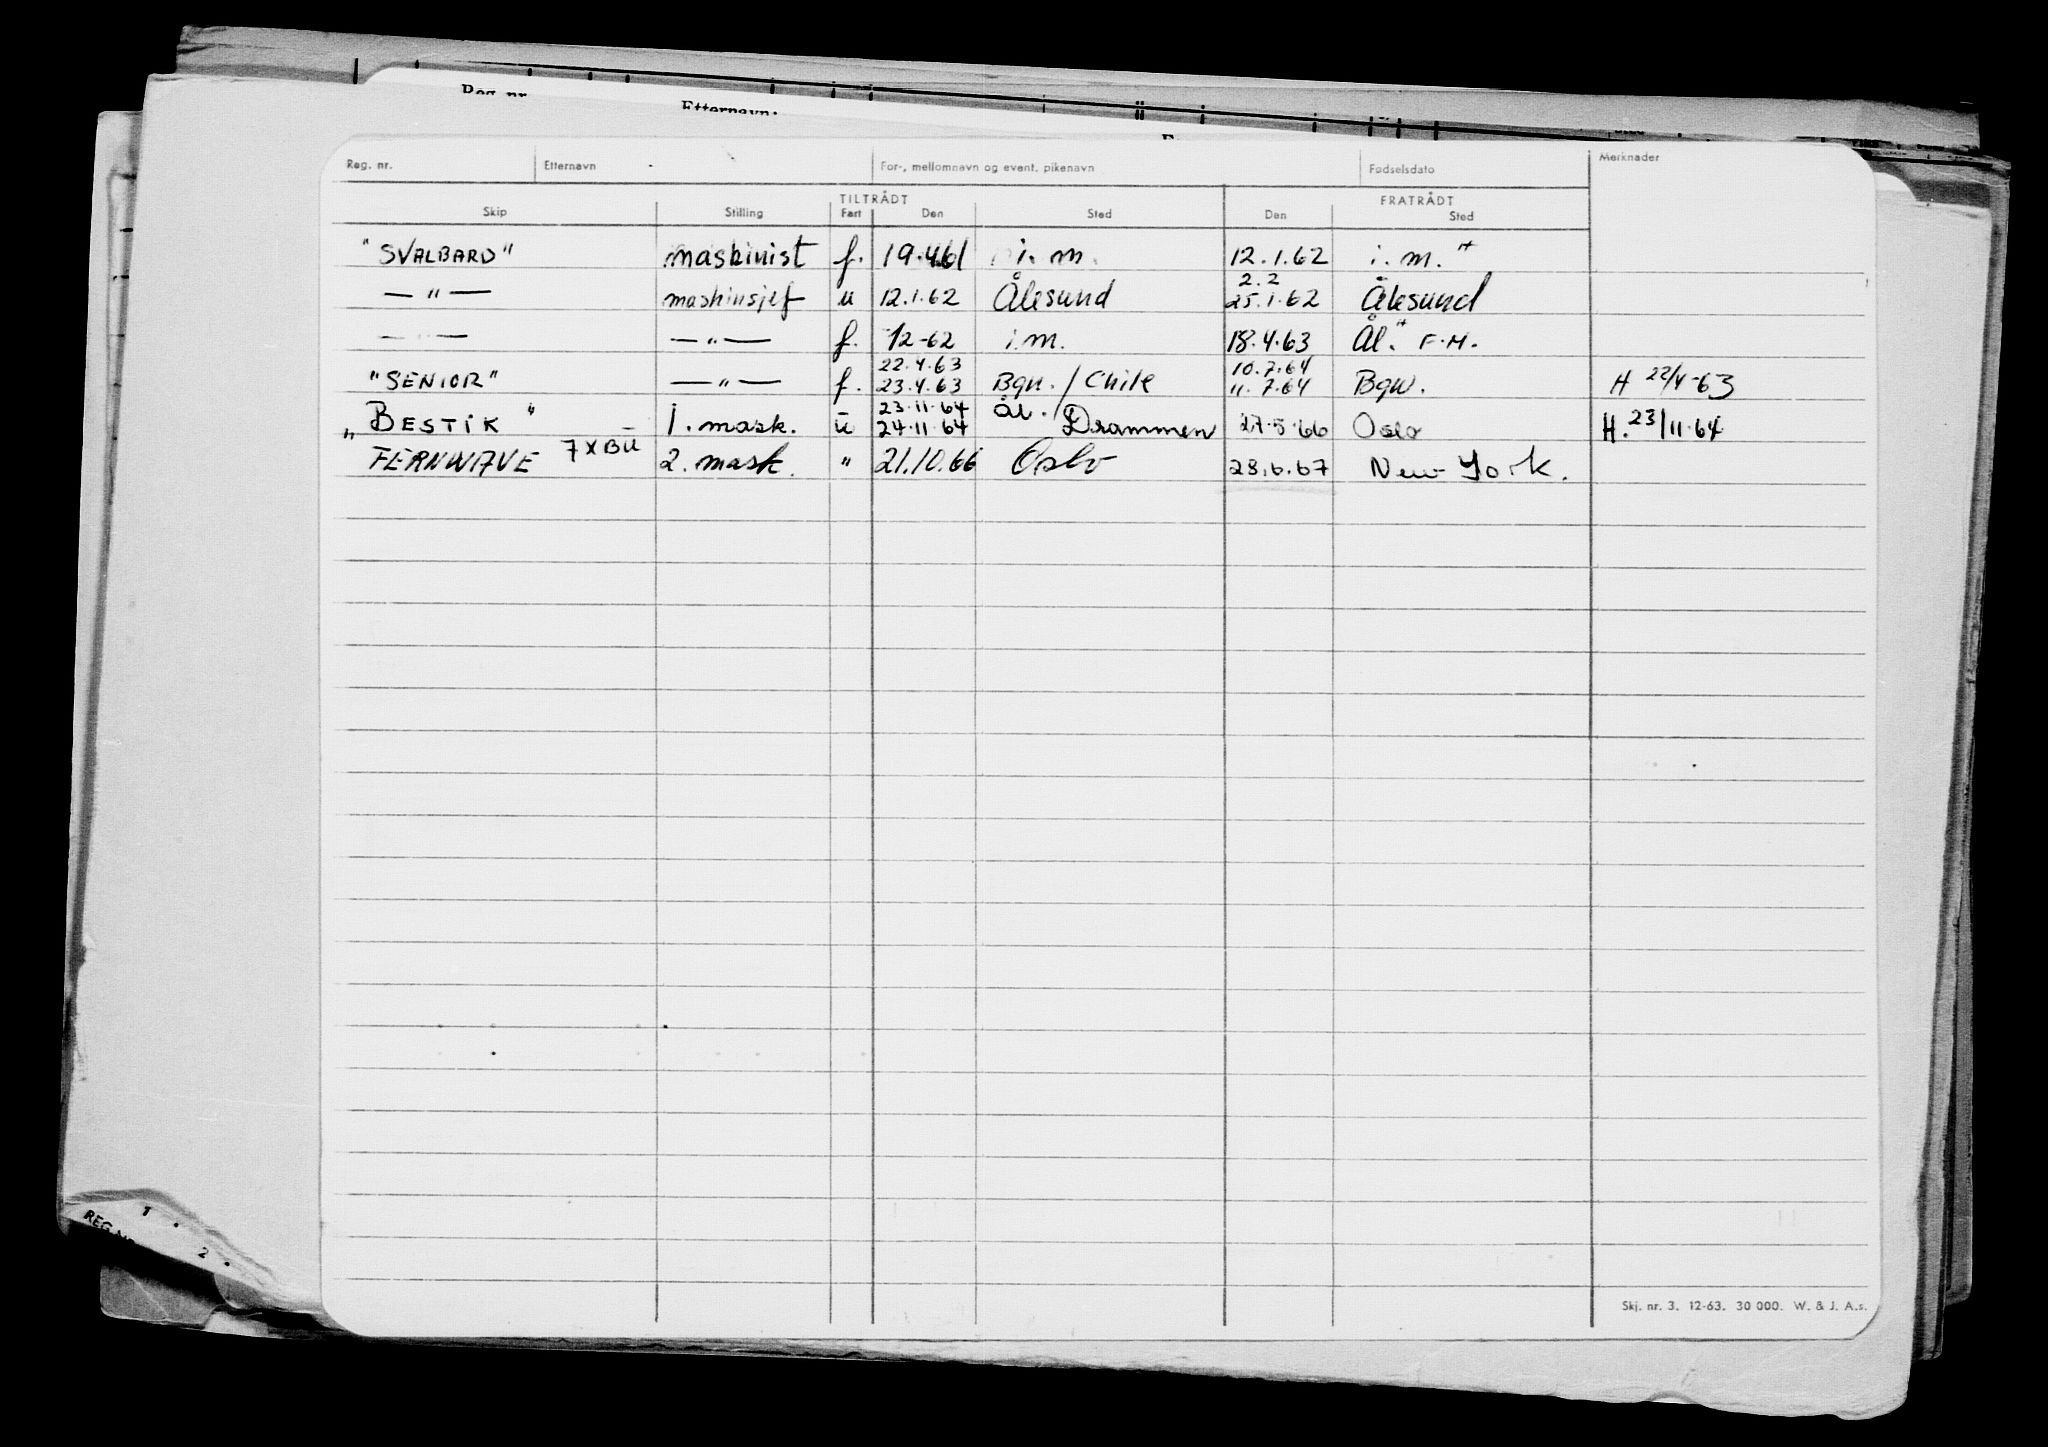 Reg. nr.
Etternavn:
Reg. nr. Etternavn For-, mellomnavn og event. pikenavn Fødselsdato Merknader
TILTRÅDT FRATRÅDT
Skip Stilling Fart Den Sted Den Sted
"SVALBARD" maskinist f. 19.4.61 i. m. 12.1.62 i. m."
2.2
— " — maskinsjef u 12.1.62 Ålesund 25.1.62 Ålesund
— " — — " — f. 12-62 i.m. 18.4.63 Ål." F.M.
22.4.63 10.7.64
"SENIOR" — " — f. 23.4.63 Bgn. / Chile 11.7.64 Bgn. H 22/4-63
23.11.64 Ål.
"BESTIK" 1. mask. u 24.11.64 / Drammen 27.5.66 Oslo H. 23/11.64
FERNWAVE 7XBU 2. mask. " 21.10.66 Oslo 28.6.67 New York.
REG. NR
1.
2.
Skj. nr. 3. 12-63. 30 000. W. & J. A.s.